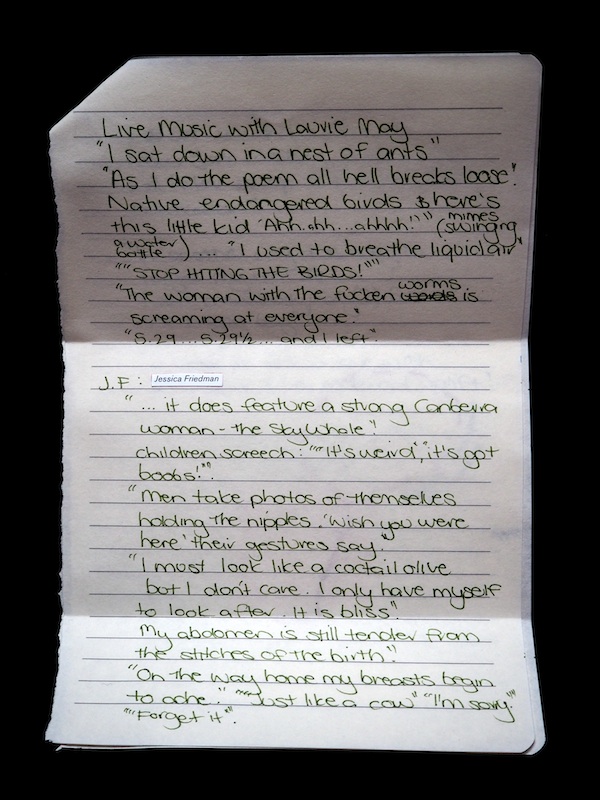 Live Music with Laurie May
"I sat down in a nest of ants"
"As I do the poem all hell breaks loose".
Native endangered birds & here's
this little kid 'Ahh.ahh...ahhhh!'" (mimes swinging
a water bottle) ... "I used to breathe liquid air"
""STOP HITTING THE BIRDS!""
"The woman with the fucken words worms is
screaming at everyone."
"5.29...5.29½... and I left".
J.F: Jessica Friedman
"... it does feature a strong Canberra
woman - the SkyWhale".
children screech: ""It's weird", "it's got
boobs!"".
"Men take photos of themselves
holding the nipples. 'Wish you were
here' their gestures say."
"I must look like a coctail olive
but I don't care. I only have myself
to look after. It is bliss".
My abdomen is still tender from
the stitches of the birth".
"On the way home my breasts begin
to ache." ""Just like a cow" "I'm sorry.""
""Forget it"".